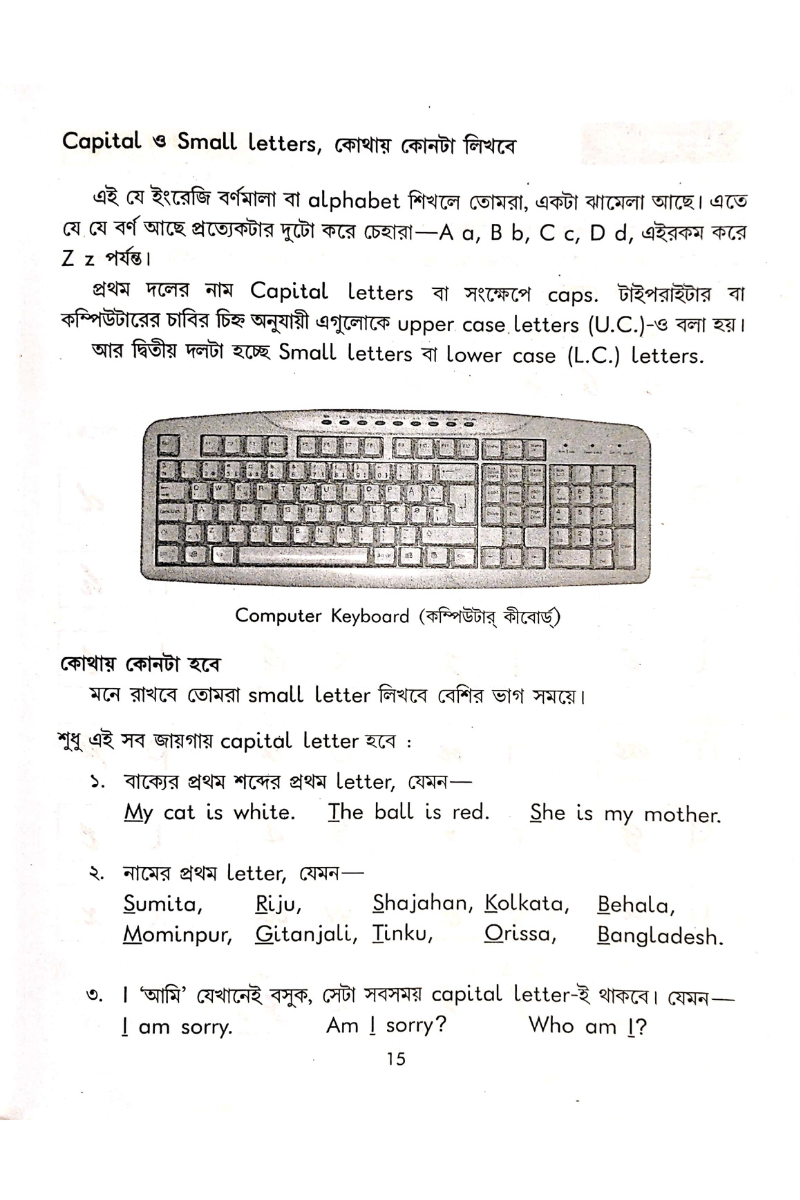 Capital ও Small letters, কোথায় কোনটা লিখবে
এই যে ইংরেজি বর্ণমালা বা alphabet শিখলে তোমরা, একটা ঝামেলা আছে। এতে
যে যে বর্ণ আছে প্রত্যেকটার দুটো করে চেহারা—A a, B b, C c, D d, এইরকম করে
Z z পর্যন্ত।
প্রথম দলের নাম Capital letters বা সংক্ষেপে caps. টাইপরাইটার বা
কম্পিউটারের চাবির চিহ্ন অনুযায়ী এগুলোকে upper case letters (U.C.)-ও বলা হয়।
আর দ্বিতীয় দলটা হচ্ছে Small letters বা lower case (L.C.) letters.
Computer Keyboard (কম্পিউটার্ কীবোর্ড্)
কোথায় কোনটা হবে
মনে রাখবে তোমরা small letter লিখবে বেশির ভাগ সময়ে।
শুধু এই সব জায়গায় capital letter হবে :
১. বাক্যের প্রথম শব্দের প্রথম letter, যেমন—
My cat is white. The ball is red. She is my mother.
২. নামের প্রথম letter, যেমন—
Sumita, Riju, Shajahan, Kolkata, Behala,
Mominpur, Gitanjali, Tinku, Orissa, Bangladesh.
৩. I ‘আমি’ যেখানেই বসুক, সেটা সবসময় capital letter-ই থাকবে। যেমন—
I am sorry. Am I sorry? Who am I?
15